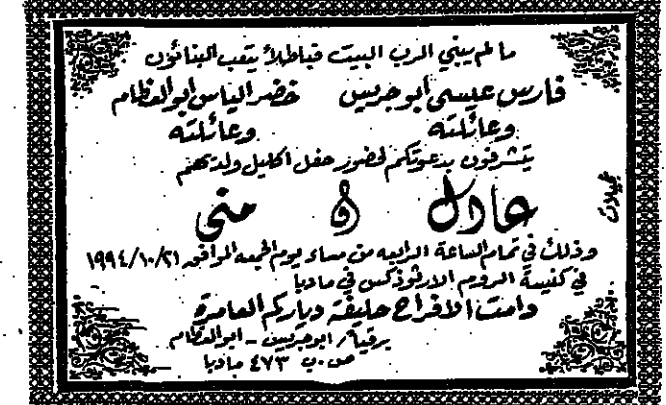 ما لم يبني الرب البيت فباطلاً يتعب البناؤون
فارس عيسى ابو جريس خضر الياس ابو العظام
وعائلته وعائلته
يتشرفون بدعوتكم لحضور حفل اكليل ولديهم
عادل و منى
وذلك في تمام الساعة الرابعه من مساء يوم الجمعه الموافق ١٩٩٤/١٠/٢١
في كنيسة الروم الارثوذكس في مادبا
ودامت الافراح حليفة دياركم العامرة
برقياً / ابو جريس - ابو العظام
ص . ب ٤٧٣ مادبا